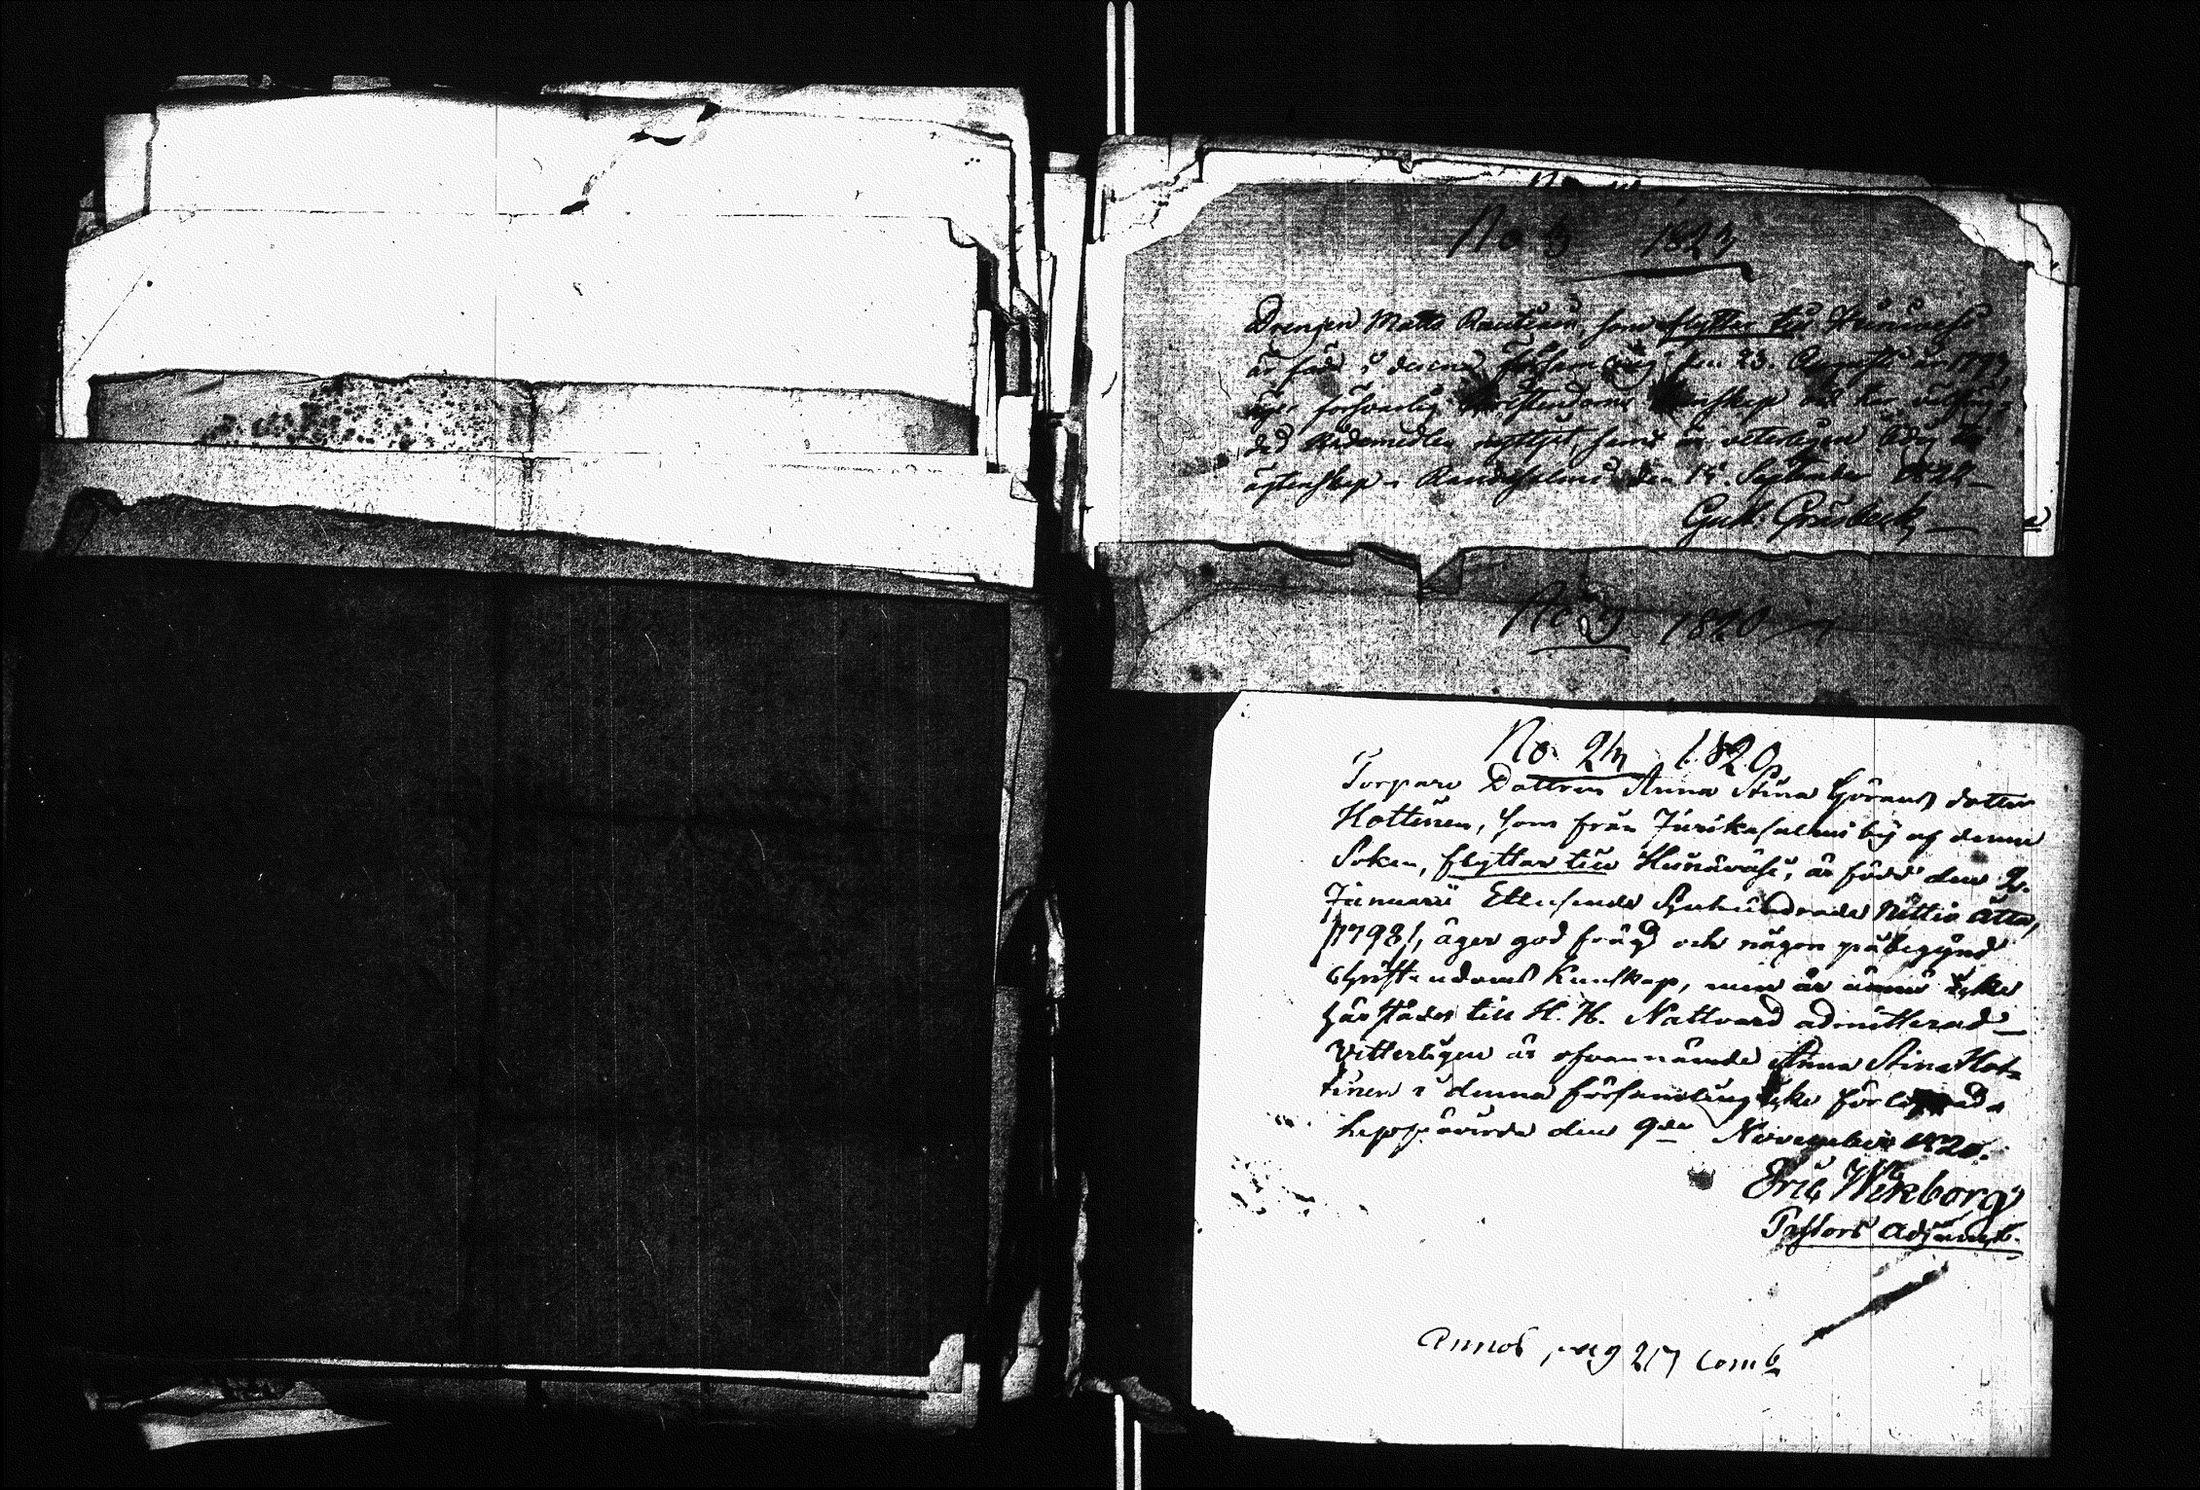 No 3 1823
Drengen Matts Rautiain, som flyttar till
är född i denna församling den 23. Augusti år 1793
äger försvarlig Christendoms kunskap och har
ded Nådemedlen nyttjat, samt är veterligen ledig till
ägtenskap. Randasalmi den 15. September 1822
Gust. Grönbeck
No 9 1820
No 24 1820
Torpare Dottren Anna Stina Görans dotter
Hottinen, som från Juvikasalmi by af denna
Soken, flyttar till Hurisvasi, är född den 2.
Januarii Ettusende Sjuhundrade Nittio åtta,
/1798/, äger god frägd och någon påbegynd
Christendoms Kunskap, men är ännu icke
härstädes till H. H. Nattvard admitterad
Vitterligen är ofvannämde Anna Stina Hot=
tinen i denna församling icke förlofvad.
Leppävirda den 9de November 1820.
Eric Wikborg
Pastors Adjunct.
Annot pag 217 Comb